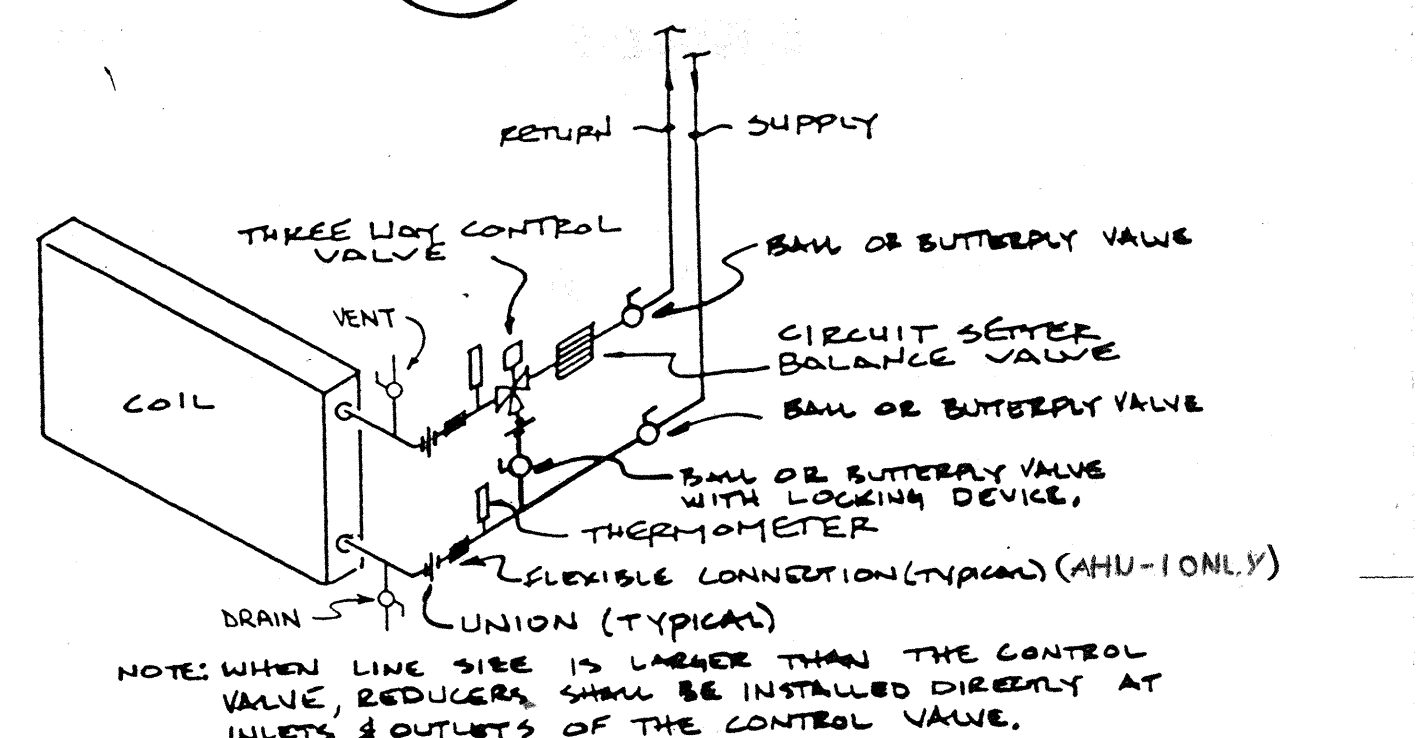 RETURN
SUPPLY
THREE WAY CONTROL
VALVE
BALL OR BUTTERFLY VALVE
VENT
CIRCUIT SETTER
BALANCE VALVE
COIL
BALL OR BUTTERFLY VALVE
BALL OR BUTTERFLY VALVE
WITH LOCKING DEVICE.
THERMOMETER
FLEXIBLE CONNECTION (TYPICAL) (AHU-1 ONLY)
DRAIN
UNION (TYPICAL)
NOTE: WHEN LINE SIZE IS LARGER THAN THE CONTROL
VALVE, REDUCERS SHALL BE INSTALLED DIRECTLY AT
INLETS & OUTLETS OF THE CONTROL VALVE.